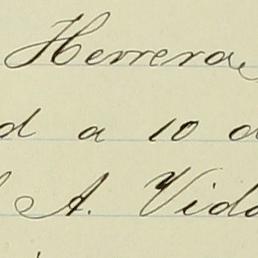 Herrera
d a 10 d
A. Vida